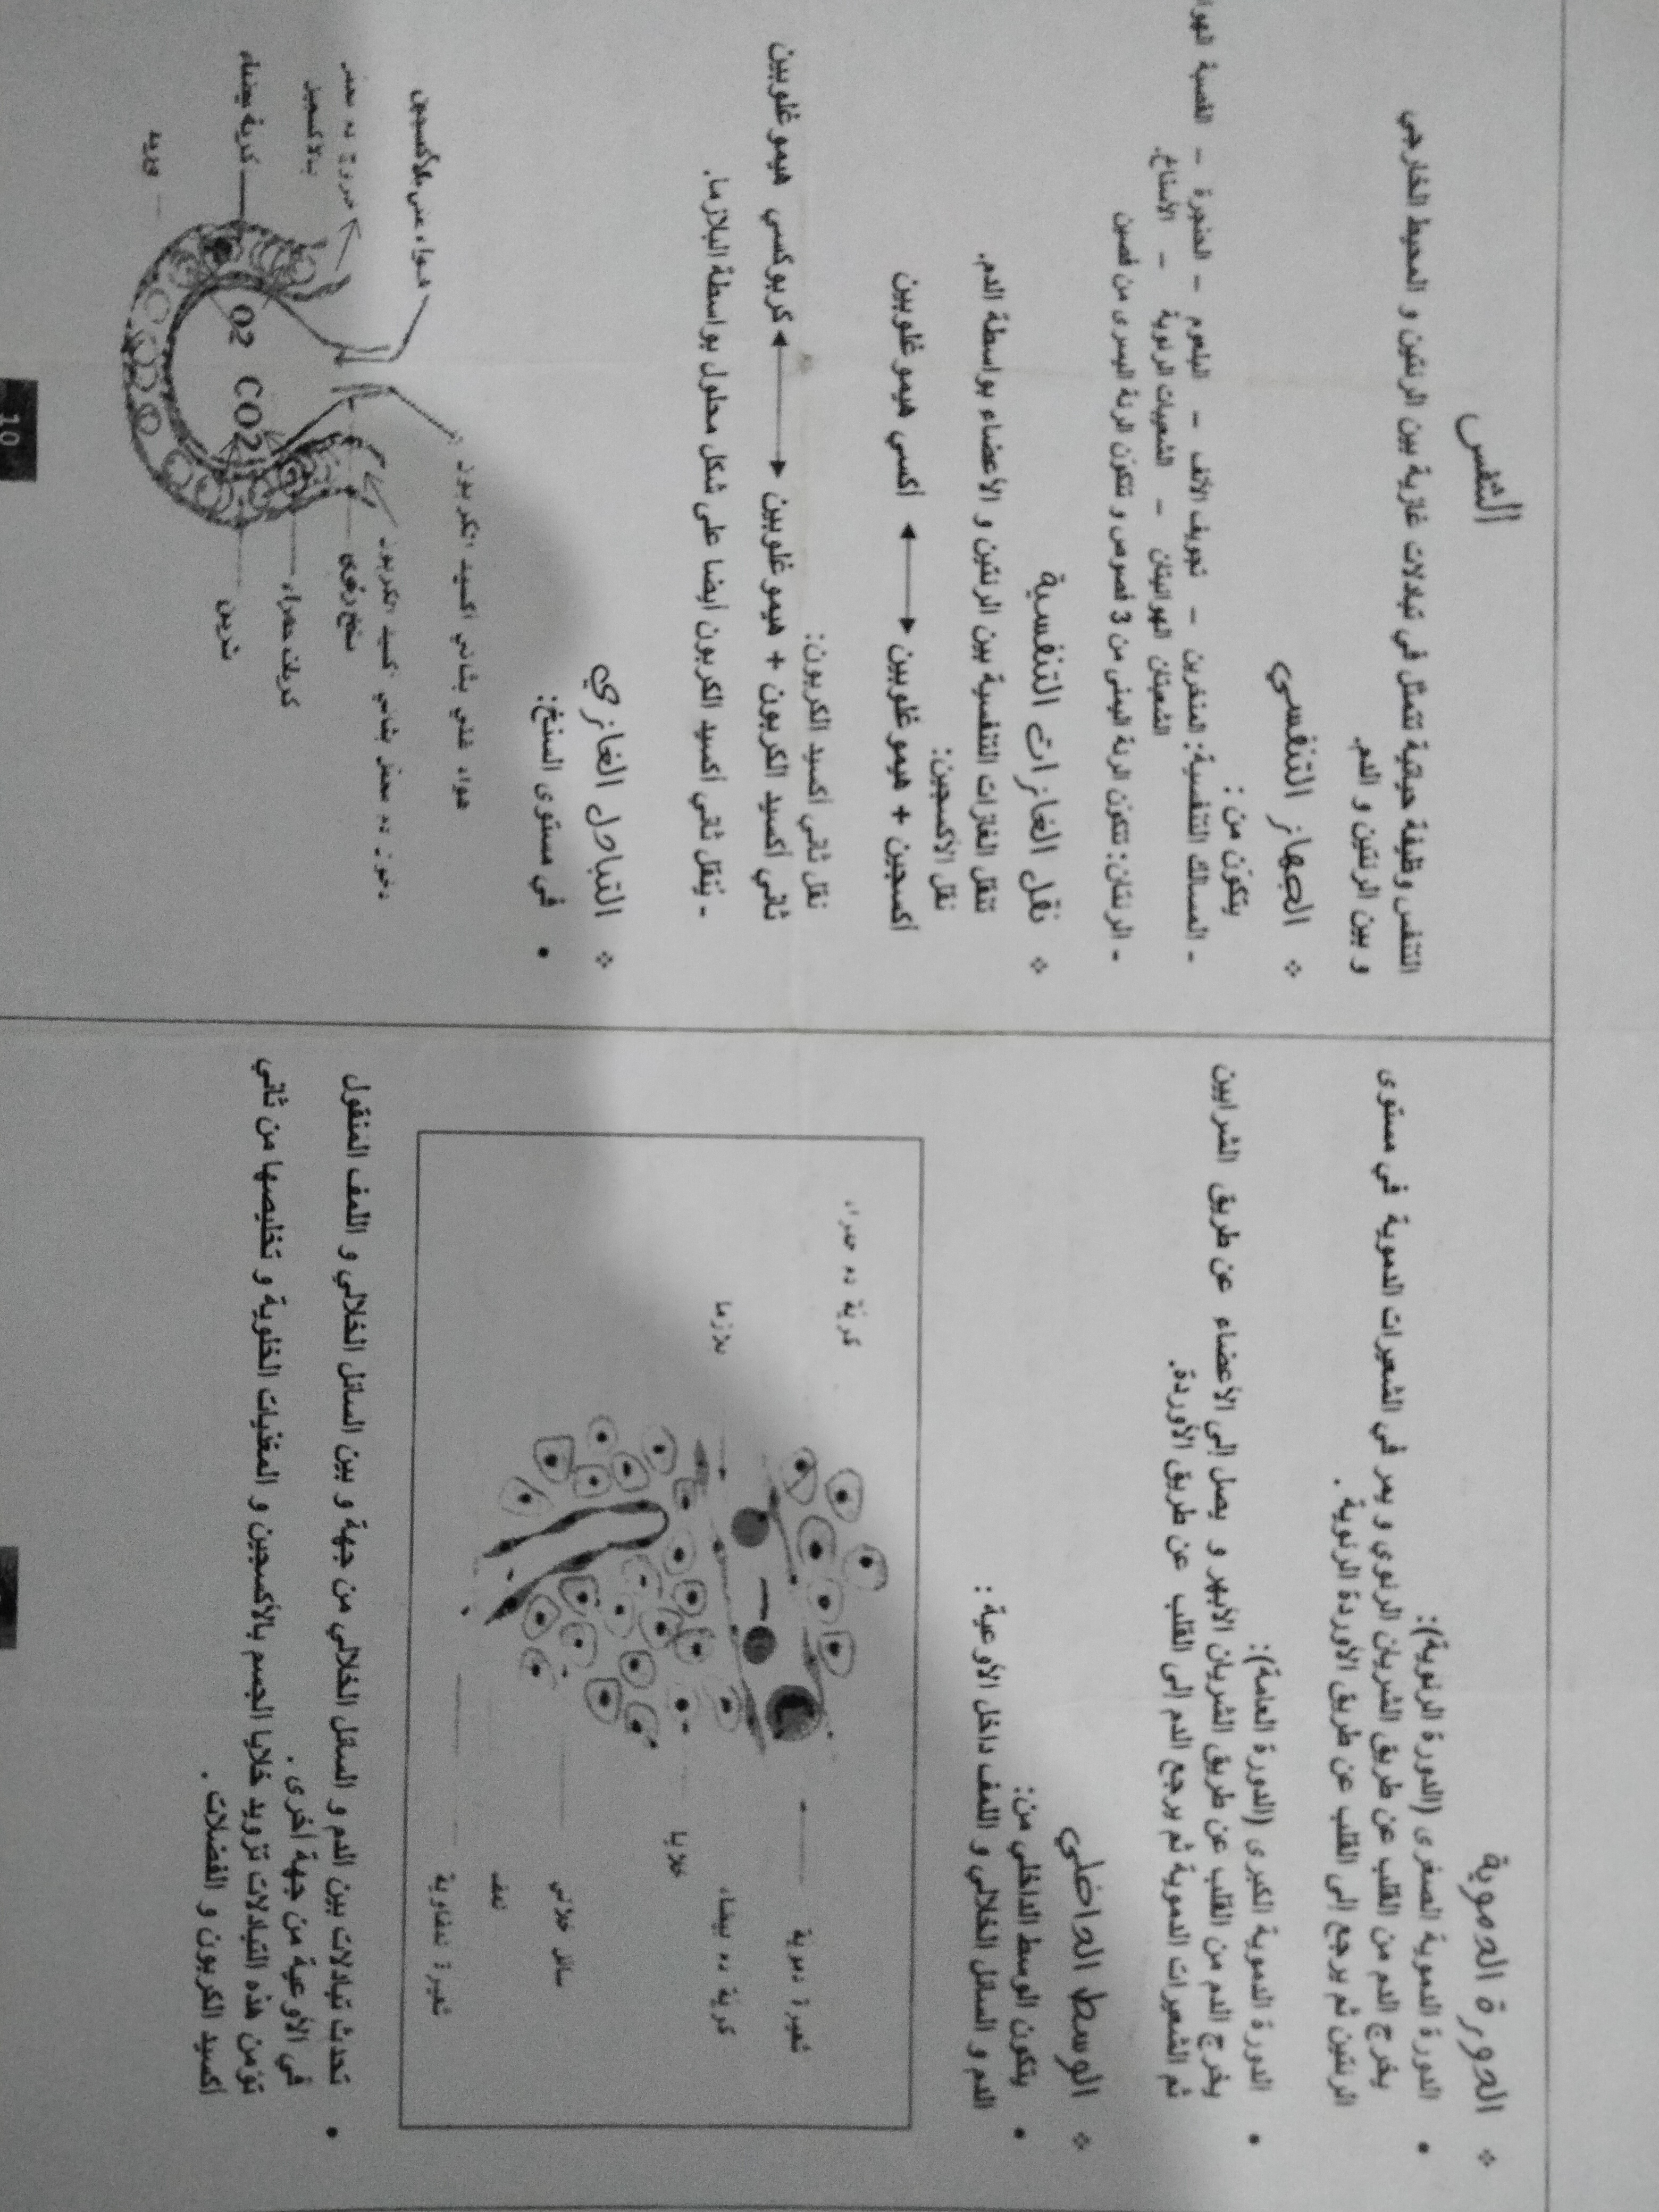 ❖ الدورة الدموية
• الدورة الدموية الصغرى (الدورة الرئوية):
يخرج الدم من القلب عن طريق الشريان الرئوي و يمر في الشعيرات الدموية في مستوى
الرئتين ثم يرجع إلى القلب عن طريق الأوردة الرئوية .
• الدورة الدموية الكبرى (الدورة العامة):
يخرج الدم من القلب عن طريق الشريان الأبهر و يصل إلى الأعضاء عن طريق الشرايين
ثم الشعيرات الدموية ثم يرجع الدم إلى القلب عن طريق الأوردة.
❖ الوسط الداخلي
• يتكون الوسط الداخلي من:
الدم و السائل الخلالي و اللمف داخل الأوعية :
كرية دم حمراء
شعيرة دموية
بلازما
كرية دم بيضاء
خلايا
سائل خلالي
لمف
شعيرة لمفاوية
• تحدث تبادلات بين الدم و السائل الخلالي من جهة و بين السائل الخلالي و اللمف المنقول
في الأوعية من جهة أخرى .
تؤمن هذه التبادلات تزويد خلايا الجسم بالأكسجين و المغذيات الخلوية و تخليصها من ثاني
أكسيد الكربون و الفضلات .
التنفس
التنفس وظيفة حياتية تتمثل في تبادلات غازية بين الرئتين و المحيط الخارجي
و بين الرئتين و الدم.
❖ الجهاز التنفسي
يتكون من :
- المسالك التنفسية: المنخرين – تجويف الأنف – البلعوم – الحنجرة – القصبة
الشعبتان الهوائيتان – الشعيبات الرئوية – الأسناخ.
- الرئتان: تتكون الرئة اليمنى من 3 فصوص و تتكون الرئة اليسرى من فصين
❖ نقل الغازات التنفسية
تنقل الغازات التنفسية بين الرئتين و الأعضاء بواسطة الدم.
نقل الأكسجين:
أكسجين + هيموغلوبين ◄──► أكسي هيموغلوبين
نقل ثاني أكسيد الكربون:
ثاني أكسيد الكربون + هيموغلوبين ◄──► كربوكسي هيموغلوبين
- يُنقل ثاني أكسيد الكربون أيضا على شكل محلول بواسطة البلازما.
❖ التبادل الغازي
• في مستوى السنخ:
هواء غني بثاني أكسيد الكربون
هواء غني بالأكسجين
دخول دم محمل بثاني أكسيد الكربون
خروج دم محمل
بالأكسجين
سنخ رئوي
كريات حمراء
كرية بيضاء
شريان
وريد
O2 CO2
10